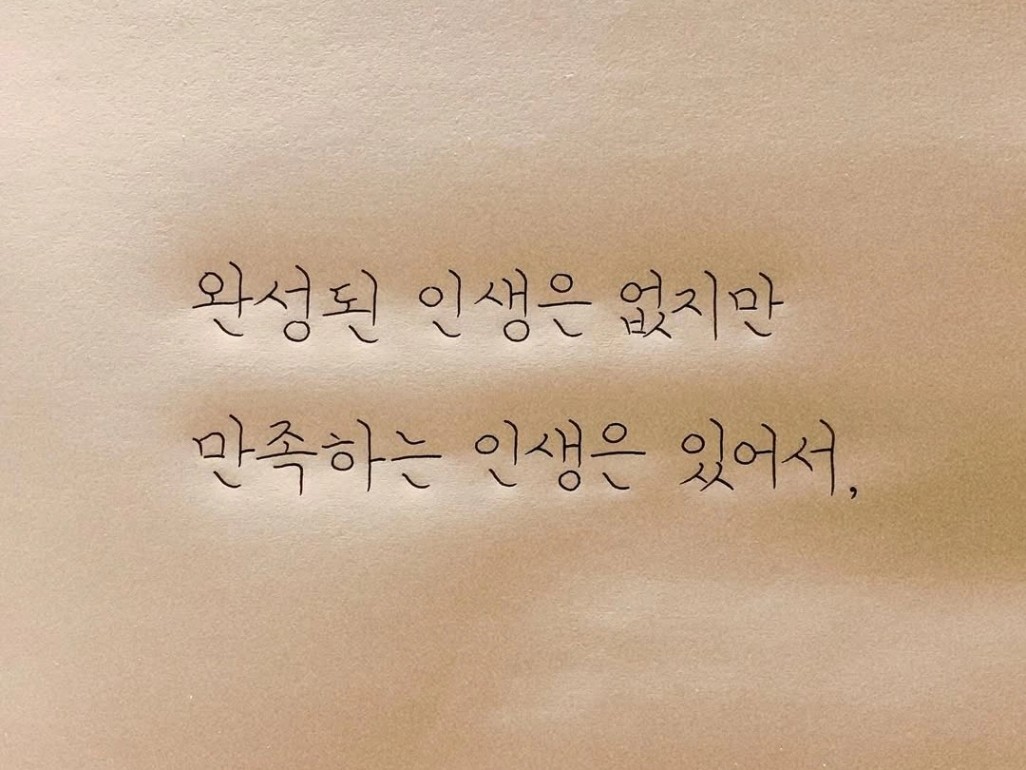 완성된 인생은 없지만
만족하는 인생은 있어서,